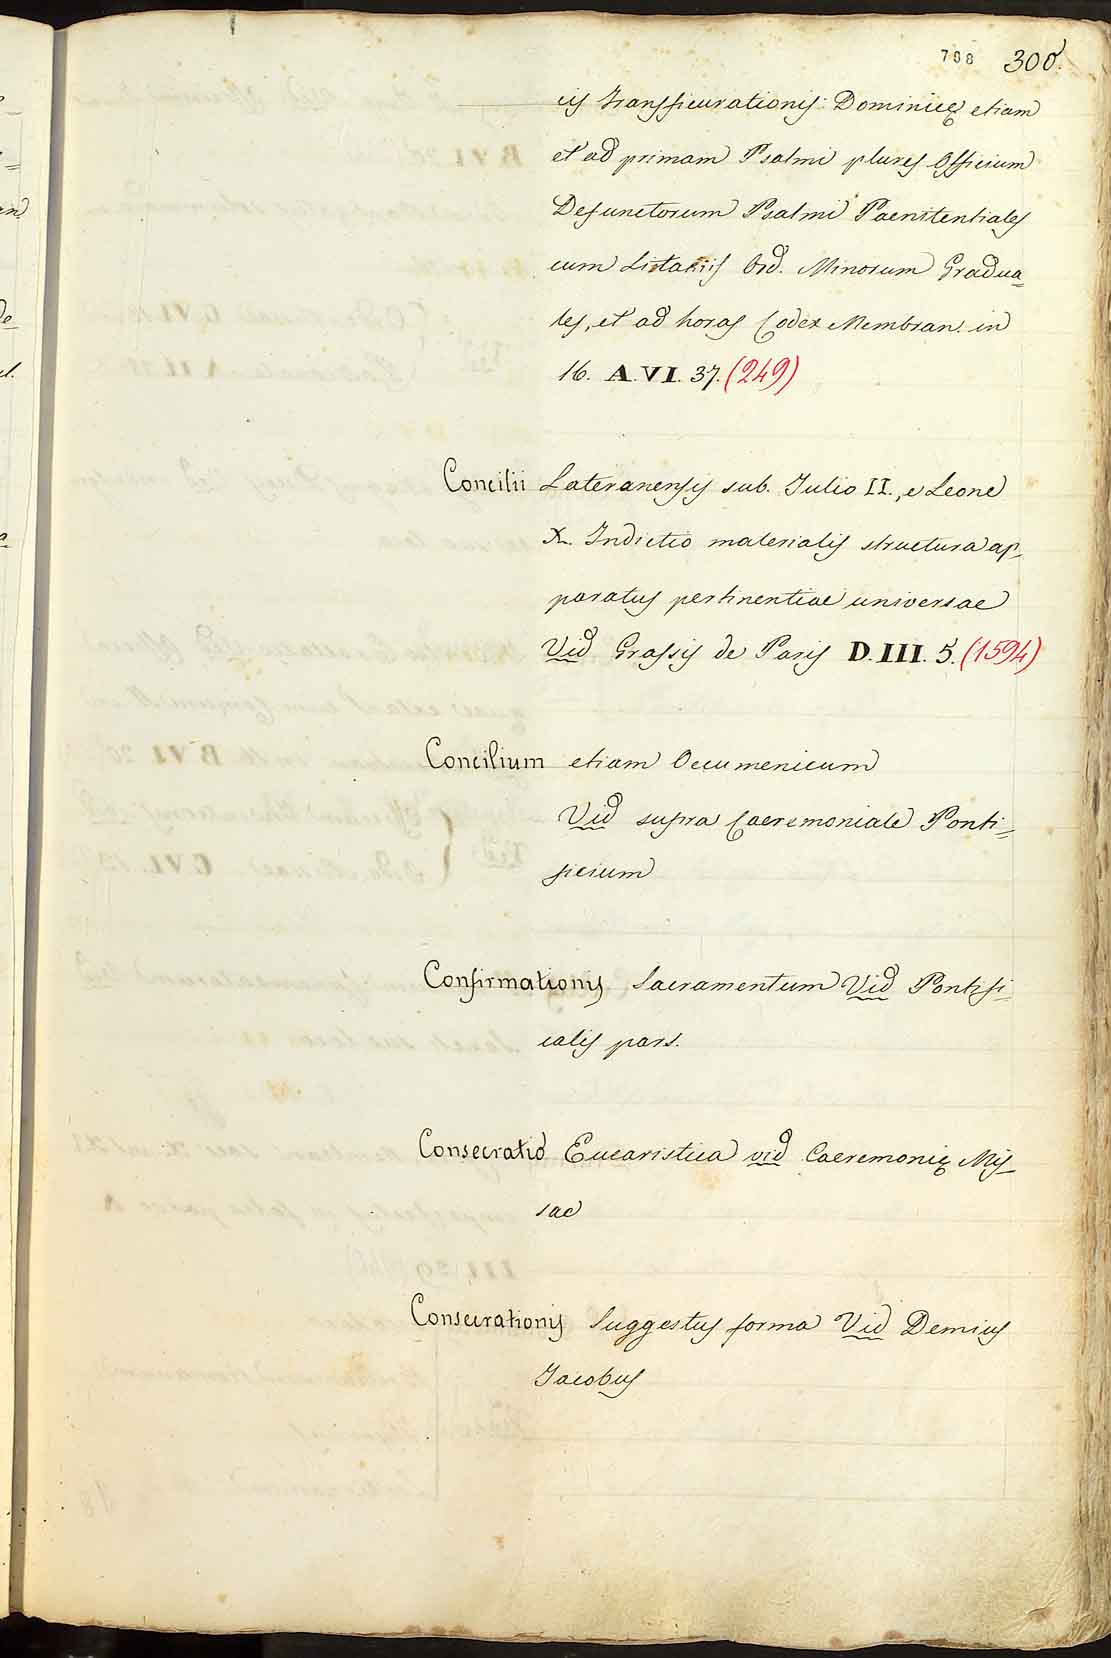 708 300.
cis Transfigurationis Dominicę etiam
et ad primam Psalmi plures Officium
Defunctorum Psalmi Paenitentiales
cum Litaniis Ord. Minorum Gradua=
les, et ad horas Codex Membran. in
16. A.VI. 37. (249)
Concilii Lateranensis sub. Julio II., e Leone
X. Indictio materialis structura ap=
paratus pertinentiae universae
Vid Grassis de Paris D.III. 5. (1594)
Concilium etiam Oecumenicum
Vid supra Caeremoniale Ponti=
ficium
Confirmationis Sacramentum Vid Pontifi=
calis pars.
Consecratio Eucaristica vid Caeremonię Mis=
sae
Consecrationis Suggestus forma Vid Demius
Jacobus